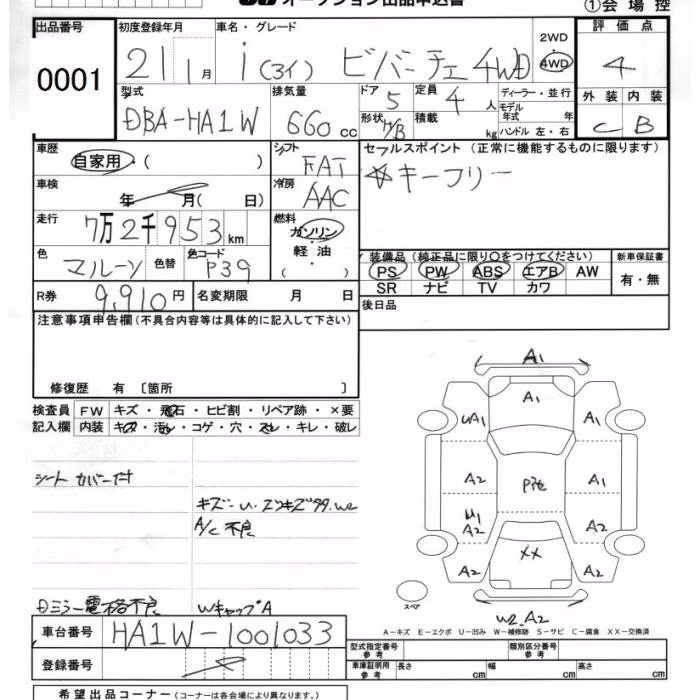 オークション出品申込書
①会場控
出品番号 初度登録年月 車名・グレード 2WD 評価点
0001 21 1月 i(アイ) ビバーチェ 4WD 4WD 4
型式 排気量 ドア 5 定員 4人 ディーラー・並行 外装 内装
DBA-HA1W 660cc 形状 H/B 積載 kg モデル年式 年 C B
ハンドル 左・右
車歴 シフト セールスポイント (正常に機能するものに限ります)
自家用・( ) FAT ☆キーフリー
車検 年 月( 日) 冷房 AAC
走行 7万2千953km 燃料 ガソリン・軽油・( )
色 マルーン 色替 色コード P39 装備品(純正品に限り○をつけてください) 新車保証書
PS PW ABS エアB AW 有・無
SR ナビ TV カワ
R券 9,910円 名変期限 月 日 後日品
注意事項申告欄(不具合内容等は具体的に記入して下さい)
修復歴 有 〔箇所 〕
検査員 FW キズ・飛石・ヒビ割・リペア跡・×要
記入欄 内装 キズ・汚レ・コゲ・穴・スレ・キレ・破レ
シートカバー付
A/C不良
Dミラー電格不良 WキャップA
A1
A1
UA1 A1
A2 A1
U1
A2 A2
XX
A2 A2
スペア
W2.A2
A-キズ E-エクボ U-凹み W-補修跡 S-サビ C-腐食 XX-交換済
車台番号 HA1W-1001033
型式指定番号 参考 類別区分番号 参考
登録番号
車庫証明用 参考 長さ cm 幅 cm 高さ cm
希望出品コーナー(コーナーは各会場により異なります。)